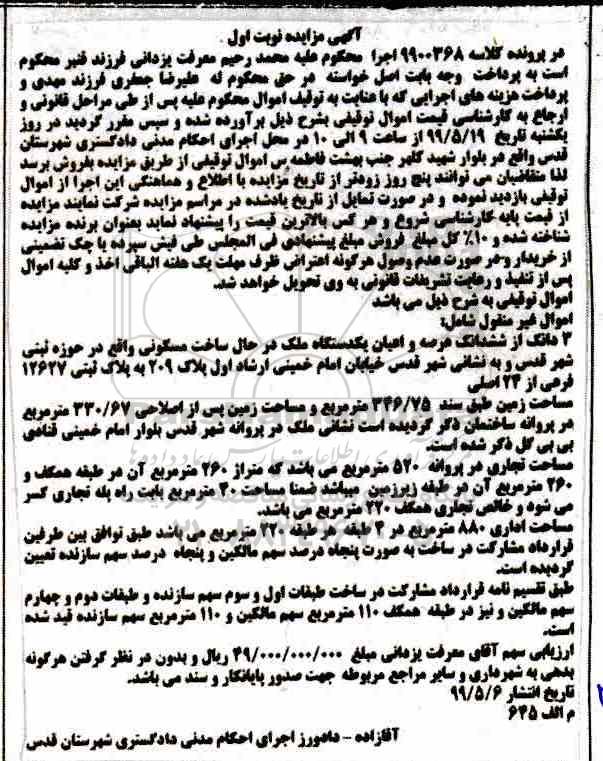 آگهی مزایده نوبت اول .
در پرونده کلاسه ۹۹۰۰۳۶۸ اجرا محکوم علیه محمد رحیم معرفت یزدانی فرزند قنبر محکوم
است به پرداخت وجه بابت اصل خواسته در حق محکوم له علیرضا جعفری فرزند مهدی و
پرداخت هزینه های اجرایی که با عنایت به توقیف اموال محکوم علیه پس از طی مراحل قانونی و
ارجاع به کارشناسی قیمت اموال توقیفی بشرح ذیل برآورده شده و سپس مقرر گردید در روز
یکشنبه تاریخ ۹۹/۵/۱۹ از ساعت ۹ الی ۱۰ در محل اجرای احکام مدنی دادگستری شهرستان
قدس واقع در بلوار شهید کلهر جنب بهشت فاطمه س اموال توقیفی از طریق مزایده بفروش برسد
لذا متقاضیان می توانند پنج روز زودتر از تاریخ مزایده با اطلاع و هماهنگی این اجرا از اموال
توقیفی بازدید نموده و در صورت تمایل از تاریخ یادشده در مراسم مزایده شرکت نمایند مزایده
از قیمت پایه کارشناسی شروع و هر کس بالاترین قیمت را پیشنهاد نماید بعنوان برنده مزایده
شناخته شده و ۱۰٪ کل مبلغ فروش مبلغ پیشنهادی فی المجلس طی فیش سپرده یا چک تضمینی
از خریدار و در صورت عدم وصول هرگونه اعتراض ظرف مهلت یک هفته الباقی اخذ و کلیه اموال
پس از تنفیذ و رعایت تشریفات قانونی به وی تحویل خواهد شد.
اموال توقیفی به شرح ذیل می باشد
اموال غیر منقول شامل:
۳ دانگ از ششدانگ عرصه و اعیان یکدستگاه ملک در حال ساخت مسکونی واقع در حوزه ثبتی
شهر قدس و به نشانی شهر قدس خیابان امام خمینی ارشاد اول پلاک ۲۰۹ به پلاک ثبتی ۱۲۶۲۷
فرعی از ۲۴ اصلی
مساحت زمین طبق سند ۳۴۶/۷۵ مترمربع و مساحت زمین پس از اصلاحی ۳۳۰/۶۷ مترمربع
در پروانه ساختمان ذکر گردیده است نشانی ملک در پروانه شهر قدس بلوار امام خمینی قنادی
بی بی گل ذکر شده است.
مساحت تجاری در پروانه ۵۲۰ مترمربع می باشد که متراژ ۲۶۰ مترمربع آن در طبقه همکف و
۲۶۰ مترمربع آن در طبقه زیرزمین میباشد ضمنا مساحت ۴۰ مترمربع بابت راه پله تجاری کسر
می شود و خالص تجاری همکف ۲۲۰ مترمربع می باشد.
مساحت اداری ۸۸۰ مترمربع در ۴ طبقه هر طبقه ۲۲۰ مترمربع می باشد طبق توافق بین طرفین
قرارداد مشارکت در ساخت به صورت پنجاه درصد سهم مالکین و پنجاه درصد سهم سازنده تعیین
گردیده است.
طبق تقسیم نامه قرارداد مشارکت در ساخت طبقات اول و سوم سهم سازنده و طبقات دوم و چهارم
سهم مالکین و نیز در طبقه همکف ۱۱۰ مترمربع سهم مالکین و ۱۱۰ مترمربع سهم سازنده قید شده
است.
ارزیابی سهم آقای معرفت یزدانی مبلغ ۴۹/۰۰۰/۰۰۰/۰۰۰ ریال و بدون در نظر گرفتن هرگونه
بدهی به شهرداری و سایر مراجع مربوطه جهت صدور پایانکار و سند می باشد.
تاریخ انتشار ۹۹/۵/۶
م الف ۶۴۵
آقازاده - دادورز اجرای احکام مدنی دادگستری شهرستان قدس